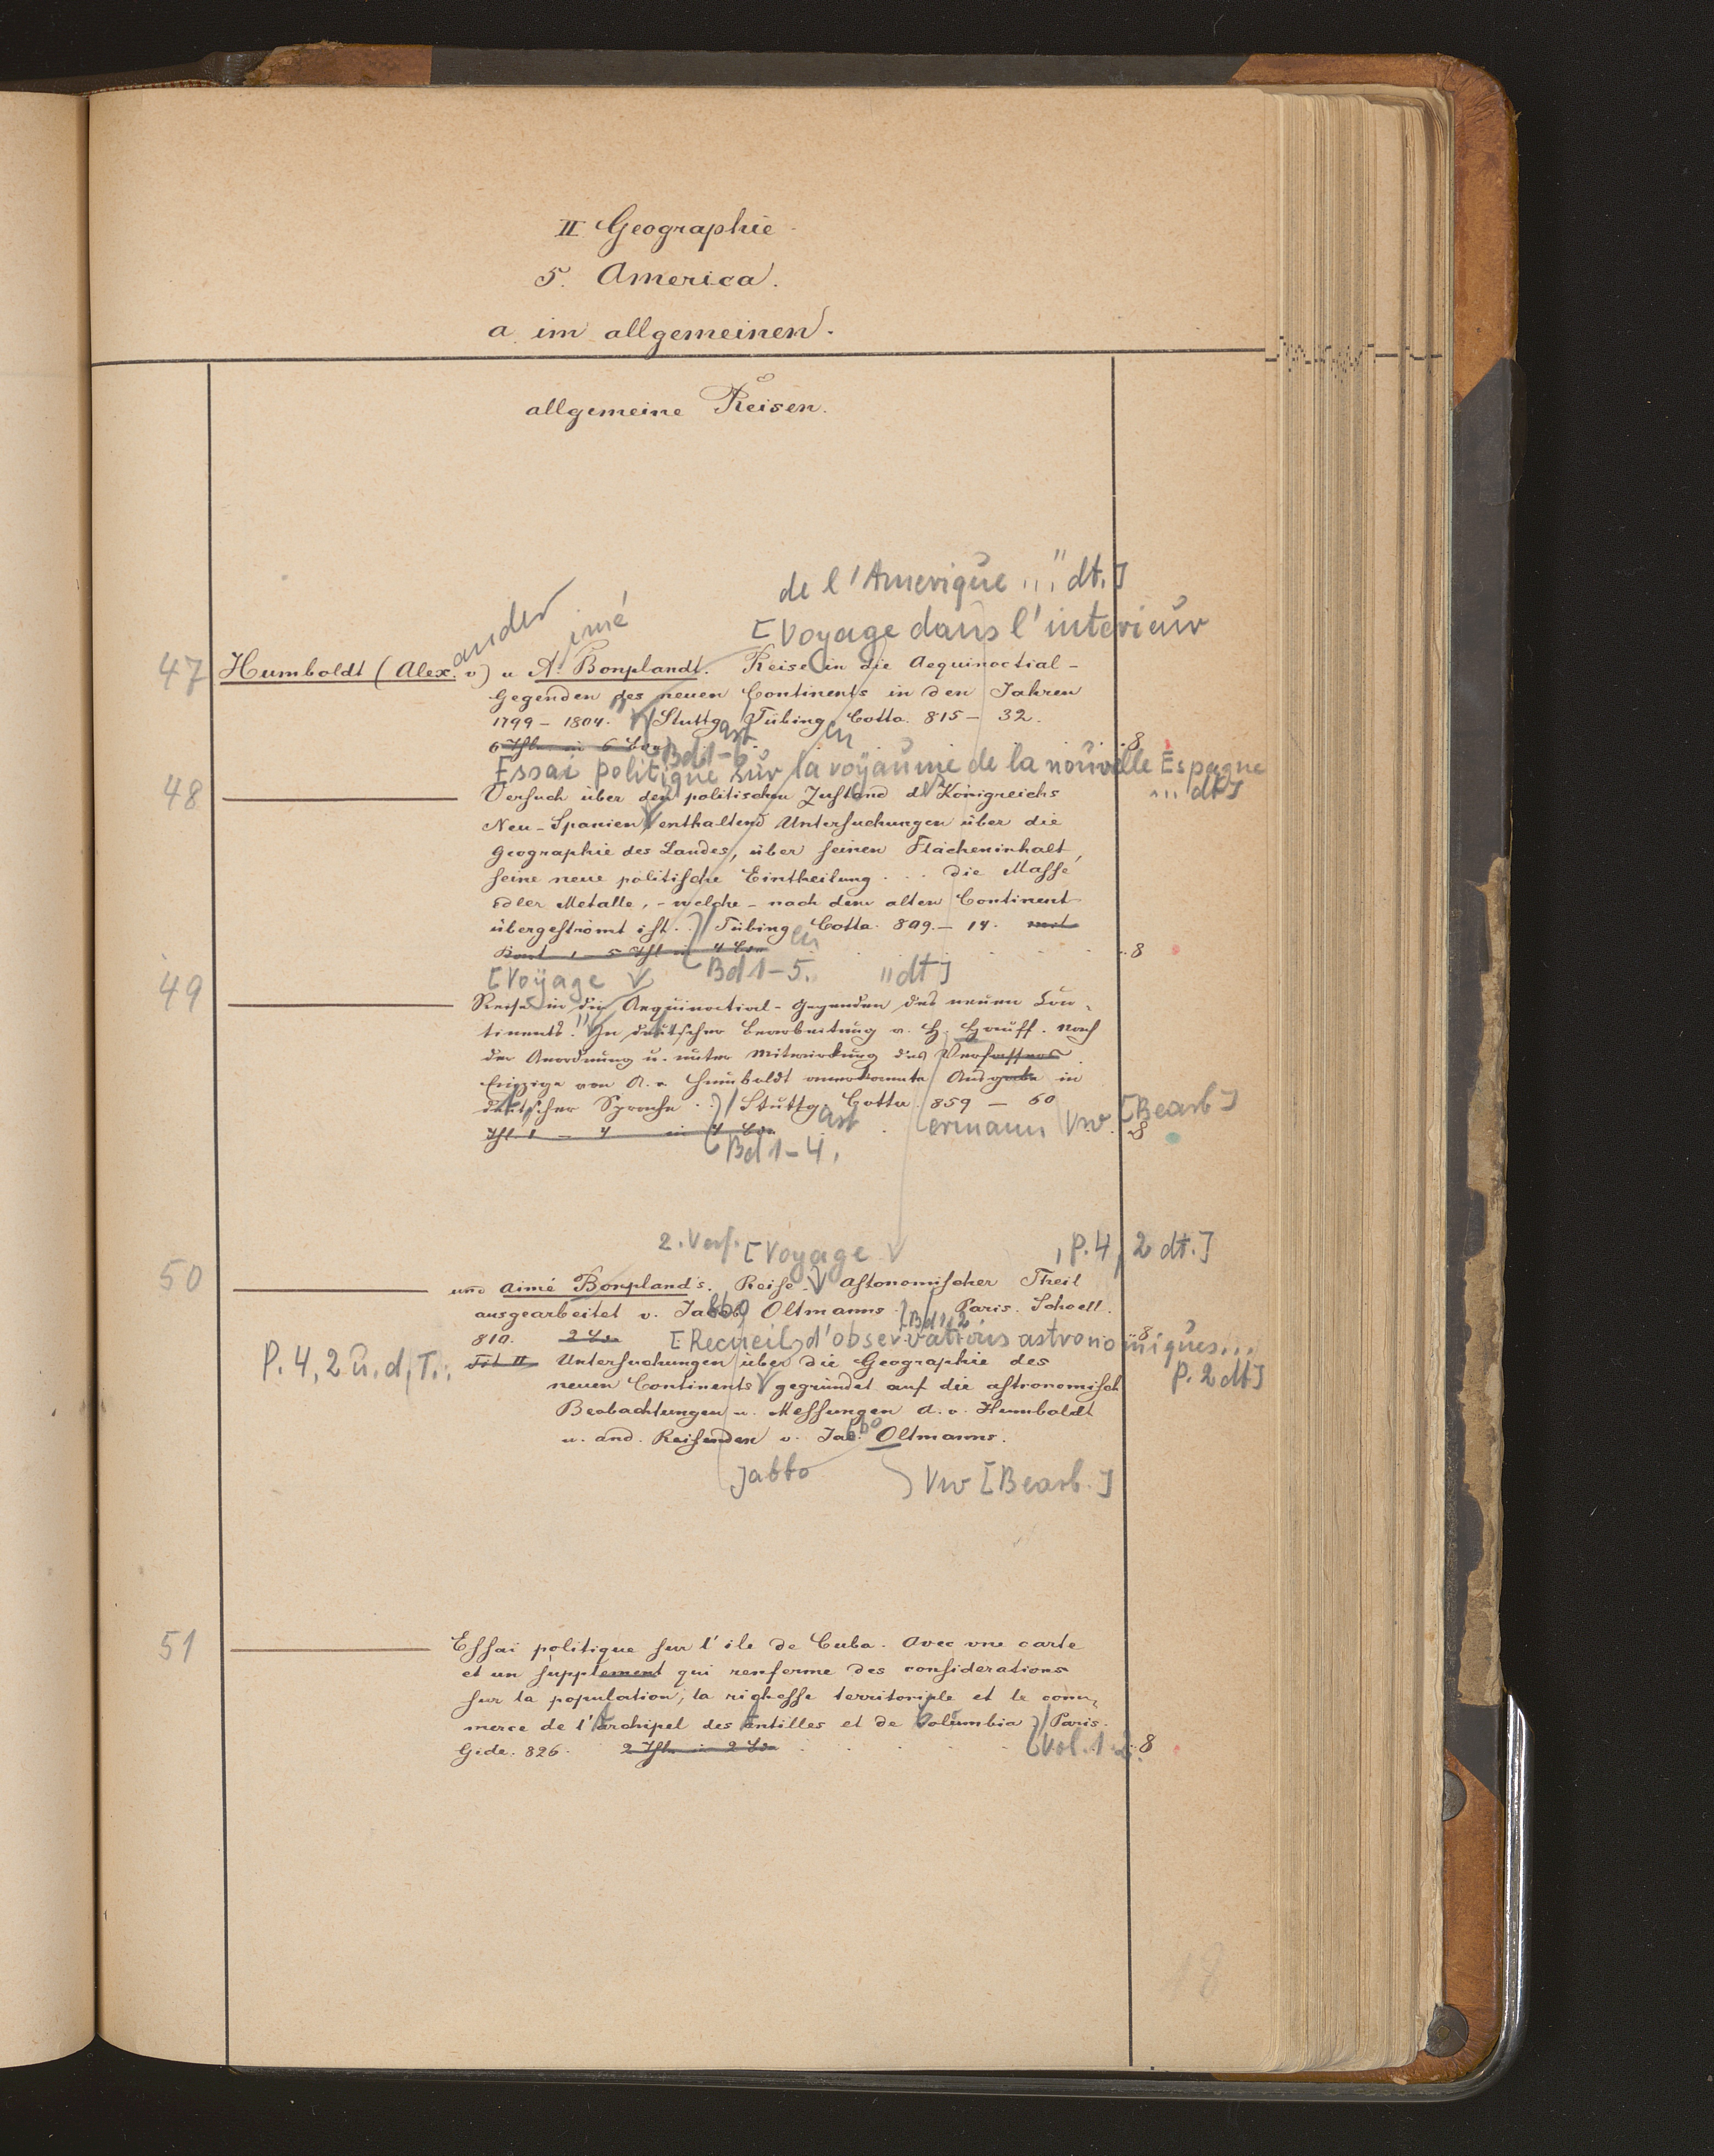 II Geographie.
5. America.
a. im allgemeinen.
allgemeine Reisen.
de l'Amerique ..." dt.]
[Voyage dans l'interieur
ander
imé
47 Humboldt (Alex. v) u A. Bonplandt. Reise in die Aequinoctial-
Gegenden des neuen Continents in den Jahren
1799 - 1804. Stuttg Tübing Cotta. 815 - 32.
art en
6 Thle in 6 Bdn Bd 1-6 8
Essai politique sur la royaume de la nouvelle Espagne
... dt]
48 Versuch über den politischen Zustand d. Königreichs
Neu-Spanien enthaltend Untersuchungen über die
Geographie des Landes, über seinen Flächeninhalt,
seine neue politische Eintheilung ... die Masse
edler Metalle, - welche - nach dem alten Continent
übergeströmt ist .. Tübing Cotta. 809. - 14.
en
8
[Voyage Bd 1-5. "dt]
49 Reise in die Aequinoctial-Gegenden des neuen Con-
tinents." In deutscher Bearbeitung v. H. Hauff. Nach
der Anordnung u. unter Mitwirkung des Verfassers.
Einzige von A. v Humboldt anerkannte Ausgabe in
deutscher Sprache .. Stuttg. Cotta 859 - 60
art ermann Vw [Bearb]
Thl. 1 - 4 in 4 Bdn 8
Bd 1-4.
2. Verf. [Voyage , P. 4, 2 dt.]
50 und Aimé Bonpland's. Reise. Astonomischer Theil
ausgearbeitet v. Jabbo Oltmanns. Paris. Schoell.
Bd 1, 2
810. 2 Bde 8
[Recueil d'observations astronomiques...
P. 2 dt]
P. 4, 2 u. d. T.: Tit II Untersuchungen über die Geographie des
neuen Continents gegründet auf die astronomisch
Beobachtungen u. Messungen A. v. Humboldt
u. and. Reisenden v. Jac. Oltmanns.
bbo
Jabbo Vw [Bearb.]
51 Essai politique sur l'ile de Cuba. Avec une carte
et un supplement qui renferme des considerations
sur la population, la richesse territoriale et le com-
merce de l'Archipel des Antilles et de Columbia Paris.
Gide. 826. 2 Thle in 2 Bde Vol. 1-2. 8
18